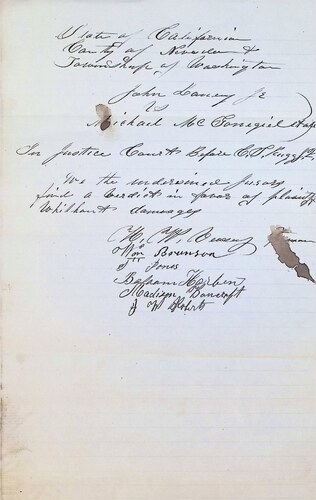 State of California
County of Nevada &
Township of Washington
John Laney Jr
vs
Michael Mc
In Justice Court Before C. S.
We the undersined Jurors
find a verdict in favor of plaintiff
Whithout damages
H. W.
Wm Brunson
J Jones
Madison Bancroft
J W Roberts